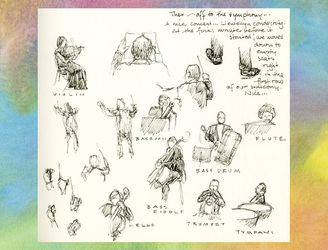 Then - off to the symphony...
A nice concert... Llewellyn conducting.
At the final minute before it
started, we moved
down to
empty
seats
right
in the
first row
of our balcony.
Nice...
VIOLIN
BASSOON
BASS DRUM
FLUTE
BASS
FIDDLE
CELLO
TRUMPET
TYMPANI